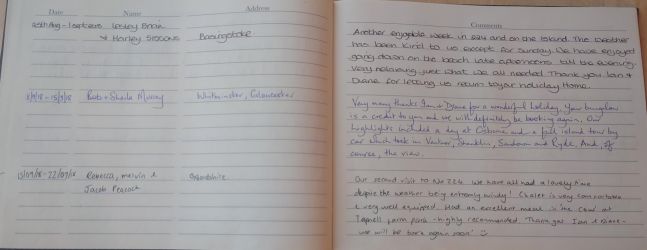 Date Name Address
25th Aug - 1 Sept 2018 Lesley Brain
& Harley Simmons Basingstoke
8/9/18 - 15/9/18 Bob + Sheila Murray Whitminster, Gloucester
15/09/18 - 22/09/18 Rebecca, Melvin &
Jacob Peacock Oxfordshire
Comments
Another enjoyable week in 224 and on the Island. The weather
has been kind to us except for Sunday. We have enjoyed
going down on the beach late afternoons till the evening.
Very relaxing just what we all needed. Thank you Ian &
Diane for letting us return to your holiday home.
Very many thanks Ian & Diane for a wonderful holiday. Your bungalow
is a credit to you and we will definitely be booking again. Our
highlights included a day at Osborne and a full island tour by
car which took in Ventnor, Shanklin, Sandown and Ryde. And, of
course, the view.
Our second visit to No 224. We have all had a lovely time
despite the weather being extremly windy! Chalet is very comfortable
& very well equipped. Had an excellent meal in 'the Cow' at
Tapnell farm park - highly recommended. Thank you Ian & Diane -
we will be back again soon! :)